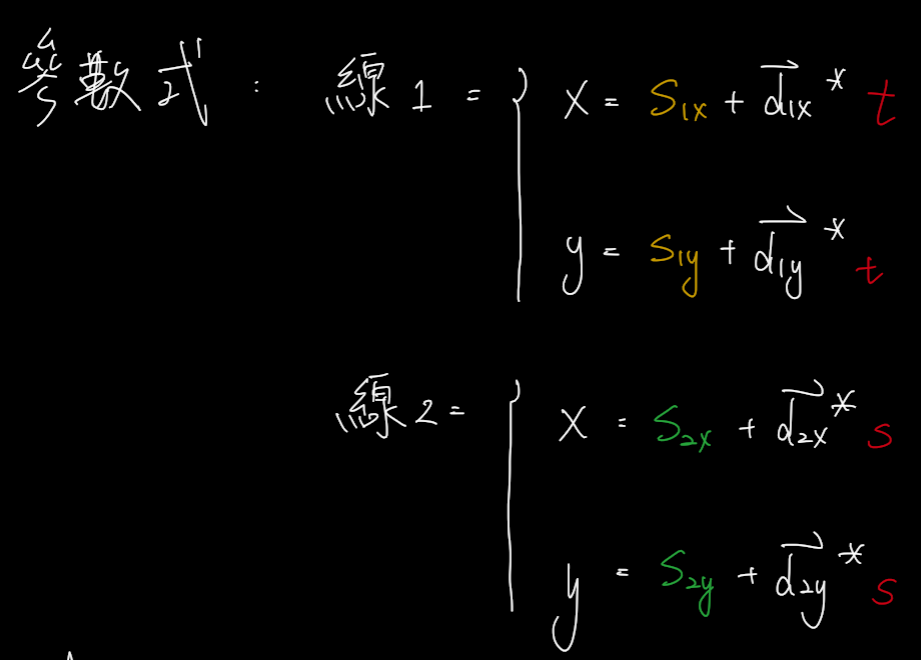 參數式 : 線1 = { x = S₁ₓ + d⃗₁ₓ * t
y = S₁y + d⃗₁y * t
線2 = { x = S₂ₓ + d⃗₂ₓ * s
y = S₂y + d⃗₂y * s